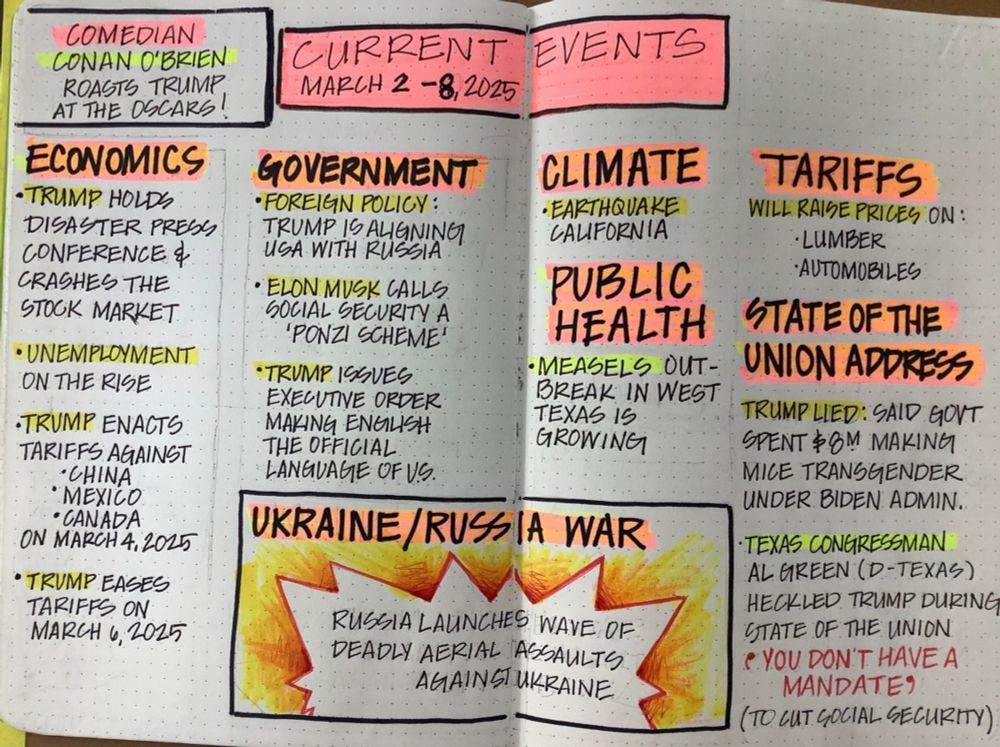 COMEDIAN
CONAN O'BRIEN
ROASTS TRUMP
AT THE OSCARS!
CURRENT EVENTS
MARCH 2-8, 2025
ECONOMICS
•TRUMP HOLDS
DISASTER PRESS
CONFERENCE &
CRASHES THE
STOCK MARKET
•UNEMPLOYMENT
ON THE RISE
•TRUMP ENACTS
TARIFFS AGAINST
•CHINA
•MEXICO
•CANADA
ON MARCH 4, 2025
•TRUMP EASES
TARIFFS ON
MARCH 6, 2025
GOVERNMENT
•FOREIGN POLICY:
TRUMP IS ALIGNING
USA WITH RUSSIA
•ELON MUSK CALLS
SOCIAL SECURITY A
'PONZI SCHEME'
•TRUMP ISSUES
EXECUTIVE ORDER
MAKING ENGLISH
THE OFFICIAL
LANGUAGE OF U.S.
CLIMATE
•EARTHQUAKE
CALIFORNIA
PUBLIC
HEALTH
•MEASELS OUT-
BREAK IN WEST
TEXAS IS
GROWING
TARIFFS
WILL RAISE PRICES ON:
•LUMBER
•AUTOMOBILES
STATE OF THE
UNION ADDRESS
TRUMP LIED: SAID GOVT
SPENT $8M MAKING
MICE TRANSGENDER
UNDER BIDEN ADMIN.
•TEXAS CONGRESSMAN
AL GREEN (D-TEXAS)
HECKLED TRUMP DURING
STATE OF THE UNION
"YOU DON'T HAVE A
MANDATE"
(TO CUT SOCIAL SECURITY)
UKRAINE/RUSSIA WAR
RUSSIA LAUNCHES WAVE OF
DEADLY AERIAL ASSAULTS
AGAINST UKRAINE